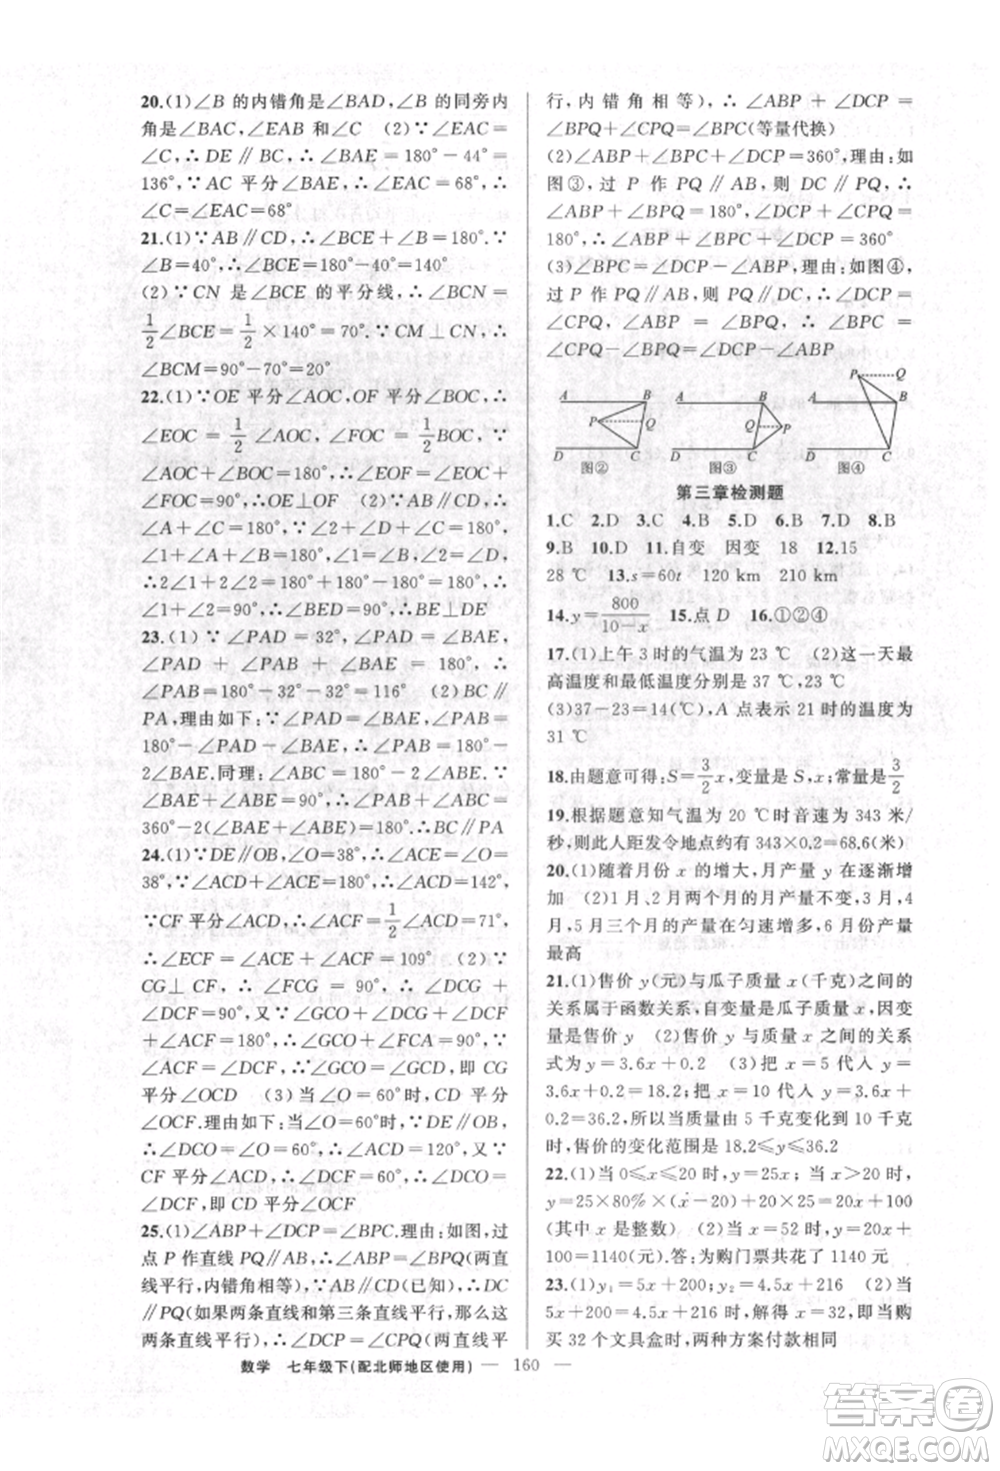 20.(1)∠B 的内错角是∠BAD,∠B 的同旁内
角是∠BAC,∠EAB 和∠C (2)∵∠EAC=
∠C,∴DE∥BC,∴∠BAE=180°-44°=
136°,∵AC 平分∠BAE,∴∠EAC=68°,∴
∠C=∠EAC=68°
21.(1)∵AB∥CD,∴∠BCE+∠B=180°.∵
∠B=40°,∴∠BCE=180°-40°=140°
(2)∵CN 是∠BCE的平分线,∴∠BCN=
1/2∠BCE=1/2×140°=70°.∵CM⊥CN,∴
∠BCM=90°-70°=20°
22.(1)∵OE 平分∠AOC,OF 平分∠BOC,
∴∠EOC=1/2∠AOC,∠FOC=1/2∠BOC.∵
∠AOC+∠BOC=180°,∴∠EOF=∠EOC+
∠FOC=90°,∴OE⊥OF (2)∵AC∥BD,∴
∠A+∠B=180°,∵∠A+∠1+∠C=180°,
∠1+∠C=180°,∴∠A+∠B+∠C+∠D=
∴2∠1+2∠2=180°,∴
∠1+∠2=90°,∴∠BED=90°,∴BE⊥DE
23.(1)∵∠PAD=32°,∠PAD=∠BAE,
∠PAD+∠PAB+∠BAE=180°,∴
∠PAB=180°-32°-32°=116° (2)BC∥
PA,理由如下:∵∠PAD=∠BAE,∠PAB=
180°-∠PAD-∠BAE,∴∠PAB=180°-
2∠BAE.同理:∠ABC=180°-2∠ABE.∵
∠BAE+∠ABE=90°,∴∠PAB+∠ABC=
360°-2(∠BAE+∠ABE)=180°.∴BC∥PA
24.(1)∵DE∥OB,∠O=38°,∴∠ACE=∠O=
38°,∵∠ACD+∠ACE=180°,∴∠ACD=142°,
∵CF 平分∠ACD,∴∠ACF=1/2∠ACD=71°,
∴∠ECF=∠ACE+∠ACF=109° (2)∵
CG⊥CF,∴∠FCG=90°,∴∠DCG+
∠DCF=90°,又∵∠GCO+∠DCG+∠DCF+
∠ACF=180°,∴∠GCO+∠FCA=90°,∵
∠ACF=∠DCF,∴∠GCO=∠GCD,即CG
平分∠OCD (3)当∠O=60°时,CD 平分
∠OCF.理由如下:当∠O=60°时,∵DE∥OB,
∴∠DCO=∠O=60°,∴∠ACD=120°.又∵CF
平分∠ACD,∴∠DCF=60°,∴∠DCO=
∠DCF,即CD平分∠OCF
25.(1)∠ABP+∠DCP=∠BPC.理由:如图②,过
点P作直线PQ∥AB,∴∠ABP=∠BPQ(两直
线平行,内错角相等),∵AB∥CD(已知),∴DC
∥PQ(如果两条直线和第三条直线平行,那么这
两条直线平行),∴∠DCP=∠CPQ(两直线平
行,内错角相等),∴∠ABP+∠DCP=
∠BPQ+∠CPQ=∠BPC(等量代换)
(2)∠ABP+∠BPC+∠DCP=360°,理由:如
图③,过P作PQ∥AB,则DC∥PQ,∴
∠ABP+∠BPQ=180°,∠DCP+∠CPQ=
180°,∴∠ABP+∠BPC+∠DCP=360°
(3)∠ABP=∠BPC+∠DCP,理由:如图④,
过P作PQ∥AB,则DC∥PQ,∴∠ABP=
180°-∠BPQ,∠DCP=180°-∠CPQ,∴∠BPC
=∠CPQ-∠BPQ=∠ABP-∠DCP
A B P Q D C 图②
A B Q P D C 图③
P Q A B D C 图④
第三章检测题
1.C 2.D 3.C 4.B 5.D 6.B 7.D 8.B
9.B 10.D 11.自变 因变 18 12.15
28 ℃ 13.s=60t 120 km 210 km
14.y=800/(10-x) 15.点 D 16.①②④
17.(1)上午3时的气温为23 ℃ (2)这一天最
高温度和最低温度分别是37 ℃,23 ℃
(3)37-23=14(℃),A点表示21时的温度为
31 ℃
18.由题意可得:S=3/2x,变量是S,x;常量是3/2
19.根据题意知气温为20 ℃时音速为343米/
秒,则此人距发令地点约有343×0.2=68.6(米)
20.(1)随着月份x的增大,月产量y在逐渐增
加 (2)1月、2月两个月的产量不变,3月,4
月,5月三个月的产量在匀速增多,6月份产量
最高
21.(1)售价y(元)与瓜子质量x(千克)之间的
关系属于函数关系,自变量是瓜子质量x,因变
量是售价y (2)售价y与质量x之间的关系
式为y=3.6x+0.2 (3)把x=5代入y=
3.6x+0.2=18.2;把x=10代入y=3.6x+
0.2=36.2,所以当质量由5千克变化到10千克
时,售价的变化范围是18.2≤y≤36.2
22.(1)当0≤x≤20时,y=25x;当x>20时,
y=25×80%×(x-20)+25×20=20x+100
(其中x是整数) (2)当x=52时,y=20x+
100=1140(元).答:为购门票共花了1140元
23.(1)y₁=5x+200;y₂=4.5x+216 (2)当
5x+200=4.5x+216时,解得x=32,即当购
买32个文具盒时,两种方案付款相同
数学 七年级下(配北师地区使用) — 160 —
答案圈
MXQE.COM